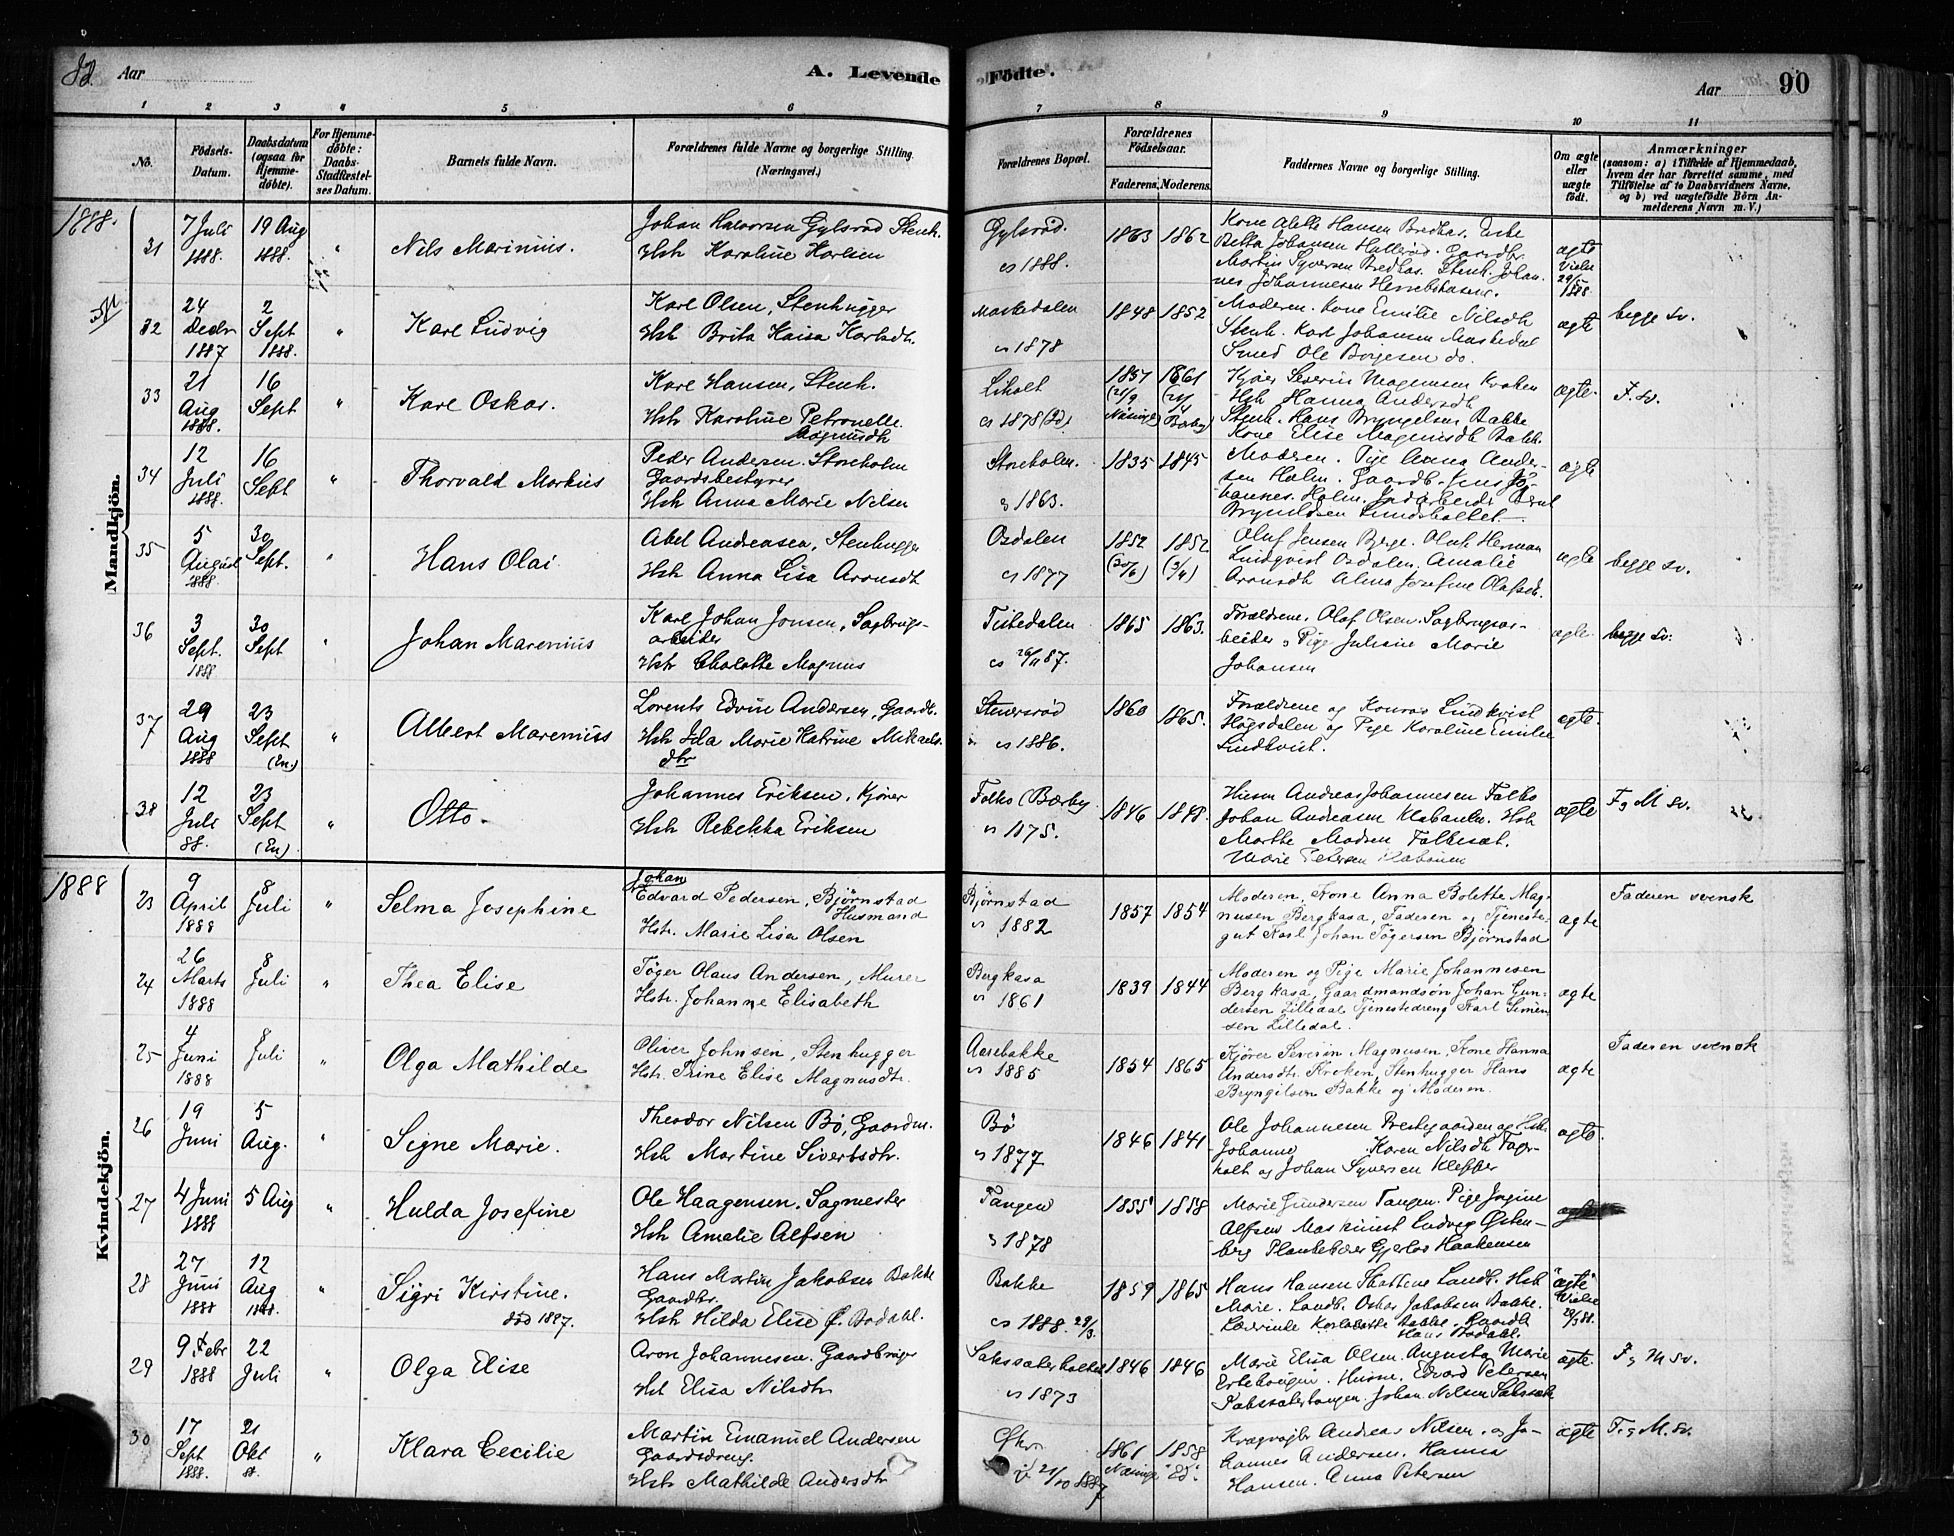 Aar
A. Levende Födte.
Aar 90
1 2 3 4 5 6 7 8 9 10 11
No.
Födsels-Datum.
Daabsdatum (ogsaa for Hjemmedøbte).
For Hjemmedøbte: Daabs-Stadfæstelses Datum.
Barnets fulde Navn.
Forældrenes fulde Navne og borgerlige Stilling. (Næringsvei.)
Forældrenes Bopæl.
Forældrenes Födselsaar.
Faderens. Moderens.
Faddernes Navne og borgerlige Stilling.
Om ægte eller uægte födt.
Anmærkninger
(saasom: a) i Tilfælde af Hjemmedaab, hvem der har forrettet samme, med Tilföielse af to Daabsvidners Navne, og b) ved uægtefödte Börn Anmelderens Navn m. V.)
Mandkjön.
1888.
31 7 Juli 1888. 19 Aug 1888. " Nils Marinius.
Johan Halvorsen Gylsrød Stenh.
Hst Karoline Karlsen
Gylsrød. es 1888. 1863 1862
Kone Alette Hansen Bredhas. Enke
Betta Johansen Hallerød. Gaardbr.
Martin Syversen Bredhas. Stenh. Johan-
nes Johannesen Herrebshasen.
ægte Vielse 29/5 1888
32 24 Decbr 1887 2 Sept 1888. " Karl Ludvig
Karl Olsen, Stenhugger
Hst Brita Kaisa Karlsdt.
Maskedalen es 1878 1848 1852
Moderen. Kone Emilie Nilsdt
Stenh. Karl Johansen Maskedal
Smed Ole Borgesen do.
ægte begge sv.
33 21 Aug 1888. 16 Sept " Karl Oskar.
Karl Hansen, Stenh.
Hst Karoline Petronelle Magnusdt
Liholt es 1878 1857 1861
Kjører Severin Magnusen Kroken
Hst Hanna Andersdt
Stenh. Hans Bryngelsen Bakke
Kone Elise Magnusdt Bakk.
ægte. F. sv.
34 12 Juli 1888. 16 Sept " Thorvald Markus
Peder Andersen. Storeholm
Gaardsbestyrer
Hst Anna Marie Nilsen
Storeholm. es 1863. 1835 1845
Moderen. Pige Anna Ander-
sen Holm. Gaardb. Jens Jo-
hannes. Holm. Jndarbeider Bernt
Bryneldsen Lundsholtet.
ægte
35 5 August 1888 30 Sept. " Hans Olai
Abel Andreasen, Stenhugger
Hst Anna Lisa Arnusdt
Osdalen es 1877 1852 (20/6) 1852 (3/4)
Oluf Jensen Berge. Oluf Herman
Lindqvist Osdalen. Amalie
Arnusdt Alma Josefine Olafsdt.
ægte begge sv.
36 3 Sept. 1888 30 Sept " Johan Marenius
Karl Johan Jonsen, Sagbrugs-
arbeider
Hst Charlotte Magnus
Tistedalen es 26/11 87. 1865 1863.
Forældrene, Olaf Olsen. Sagbrugsar-
beider, Pige Juliane Marie
Johansen
ægte. begge sv.
37 29 Aug 1888 23 Sept (En.) " Albert Marenius
Lorents Edvin Andersen, Gaardb.
Hst Ida Marie Katrine Mikaels-
dtr
Stenersrød es 1886. 1860 1865.
Forældrene og Konrad Lindkvist
Høgsdalen og Pige Karoline Emilie
Lindkvist.
ægte.
38 12 Juli 88. 23 Sept (En) " Otto.
Johannes Eriksen. Kjører
Hst Rebekka Eriksen
Folko (Berby es 1875. 1846 1848.
Husm Andreas Johannesen Folko
Johan Andreasen Klabauten. Hst
Marthe Madsen Folkesæt.
Marie Petersen
ægte F. M sv.
Kvindekjön.
1888
23 9 April 1888 8 Juli " Selma Josephine
Johan
Edvard Pedersen, Bjørnstad
Husmand
Hstr. Marie Lisa Olsen
Bjørnstad es 1882 1857 1854
Moderen, Kone Anna Bolette Mag-
nusen Bergkasa, Faderen og Tjeneste-
gut Karl Johan Tøgersen Bjørnstad
ægte Faderen svensk
24 26 Marts 1888 8 Juli " Thea Elise
Tøger Olaus Andersen, Murer
Hstr. Johanne Elisabeth
Bergkasa es 1861 1839 1844
Moderen og Pige Marie Johannesen
Bergkasa, Gaardmandssøn Johan Gun-
dersen Lilledal Tjenestedreng Karl Simen-
sen Lilledal.
ægte
25 4 Juni 1888 8 Juli " Olga Mathilde
Oliver Johnsen, Stenhugger
Hstr. Trine Elise Magnusdtr.
Aarebakke es 1885 1854 1865
Kjører Severin Magnusen, Kone Hanna
Andersdtr. Kroken, Stenhugger Hans
Bryngilsen Bakke og Moderen.
ægte Faderen svensk
26 19 Juni 5 Aug. " Signe Marie.
Theodor Nilsen Bø, Gaardm.
Hst Martine Sivertsdtr.
Bø es 1877 1846 1841
Ole Johannesen Prestegaarden og Hstr.
Johanne Karen Nilsdt Fager-
holt og Johan Syversen Klepper
ægte.
27 4 Juni 1888 5 Aug " Hulda Josefine
Ole Haagensen. Sagmester
Hst Amalie Alfsen
Tangen es 1878 1855 1858
Marie Gundersen Tangen. Pige Jngine
Alfsen Maskinist Ludvig Østen-
berg Plankebærer Gjerlos Haakensen
ægte
28 27 Juni 1888 12 Aug 1888. " Sigri Kirstine.
død 1897.
Hans Martin Jakobsen Bakke
Gaardbr.
Hst Hilda Elise Ø. Bodahl.
Bakke es 1888. 29/3. 1859 1865
Hans Hansen Skattene Landh. Hst
Marie. Landb. Oskar Jakobsen Bakke.
Lærerinde Bakke. Gaardb
Hans Bodahl.
"ægte" Vielse 29/3 88.
29 9 Febr 1888 22 Juli " Olga Elise
Aron Johannesen. Gaardbruger
Hst Elisa Nilsdtr
es 1873 1846 1846
Marie Elisa Olsen. Augusta Marie
Husm. Edvard Petersen
Johan Nilsen
ægte. F, M sv.
30 17 Sept 1888. 21 Okt 88. " Klara Cecilie
Martin Emanuel Andersen
Gaardsdreng.
Hst Mathilde Andersdtr
21/10 1887 1861 1858
Andreas Nilsen. og Jo-
hannes Andersen. Hanna
Hansen. Anna Petersen
ægte F. M. sv.